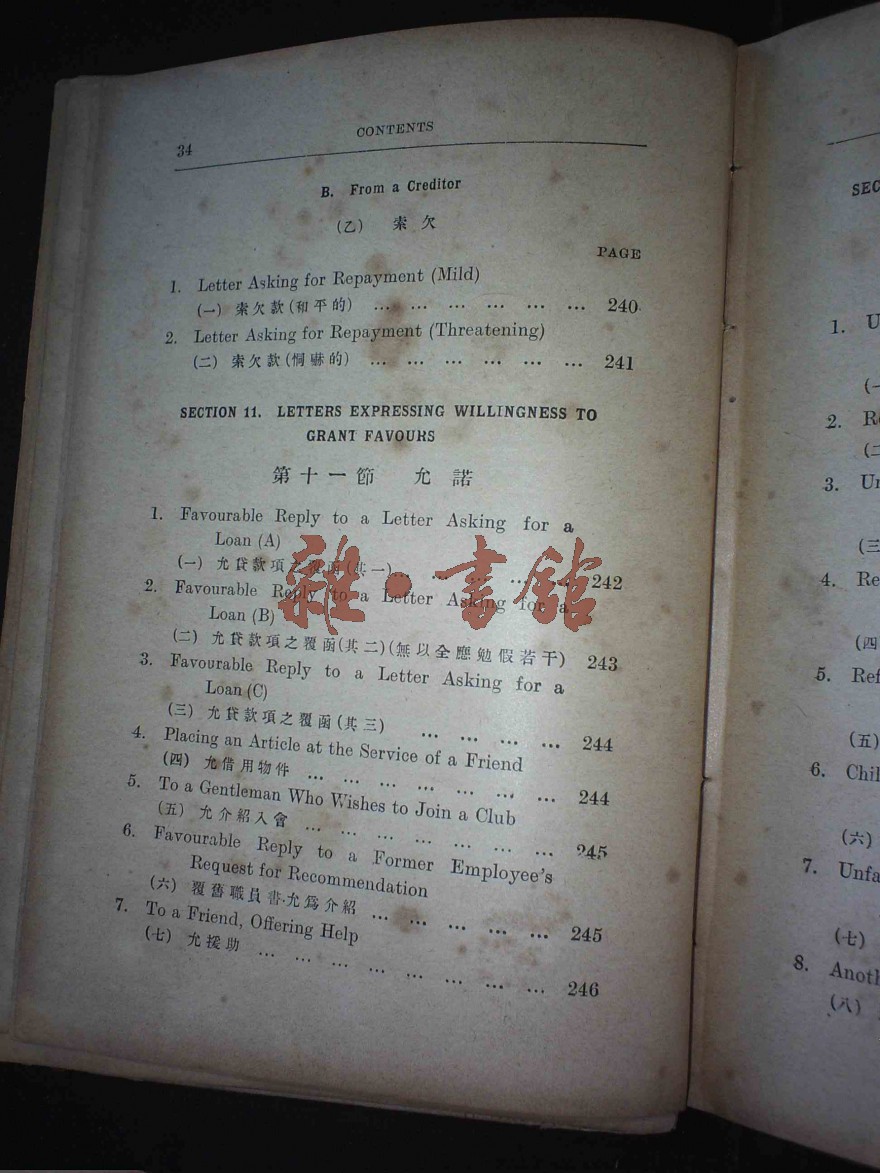 34
CONTENTS
B. From a Creditor
(乙) 索欠
PAGE
1. Letter Asking for Repayment (Mild)
(一) 索欠款(和平的) ... ... ... ... ... ... 240
2. Letter Asking for Repayment (Threatening)
(二) 索欠款(恫嚇的) ... ... ... ... ... ... 241
SECTION 11. LETTERS EXPRESSING WILLINGNESS TO
GRANT FAVOURS
第十一節 允諾
1. Favourable Reply to a Letter Asking for a
Loan (A)
(一) 允貸款項之覆函(其一)... ... ... ... ... 242
2. Favourable Reply to a Letter Asking for a
Loan (B)
(二) 允貸款項之覆函(其二)(無以全應勉假若干) 243
3. Favourable Reply to a Letter Asking for a
Loan (C)
(三) 允貸款項之覆函(其三) ... ... ... ... 244
4. Placing an Article at the Service of a Friend
(四) 允借用物件 ... ... ... ... ... ... ... 244
5. To a Gentleman Who Wishes to Join a Club
(五) 允介紹入會 ... ... ... ... ... ... ... 245
6. Favourable Reply to a Former Employee's
Request for Recommendation
(六) 覆舊職員書·允爲介紹 ... ... ... ... ... 245
7. To a Friend, Offering Help
(七) 允援助 ... ... ... ... ... ... ... ... 246
雜·書館
1.
(一
2.
(二
3.
(三
4.
(四
5.
(五)
6.
(六)
7.
(七)
8.
(八)